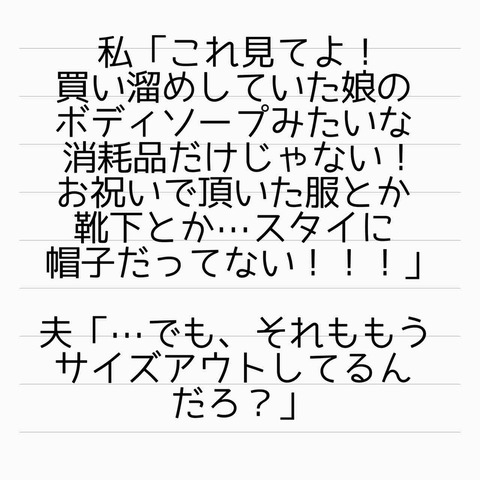 私「これ見てよ！
買い溜めしていた娘の
ボディソープみたいな
消耗品だけじゃない！
お祝いで頂いた服とか
靴下とか…スタイに
帽子だってない！！！」
夫「…でも、それももう
サイズアウトしてるん
だろ？」